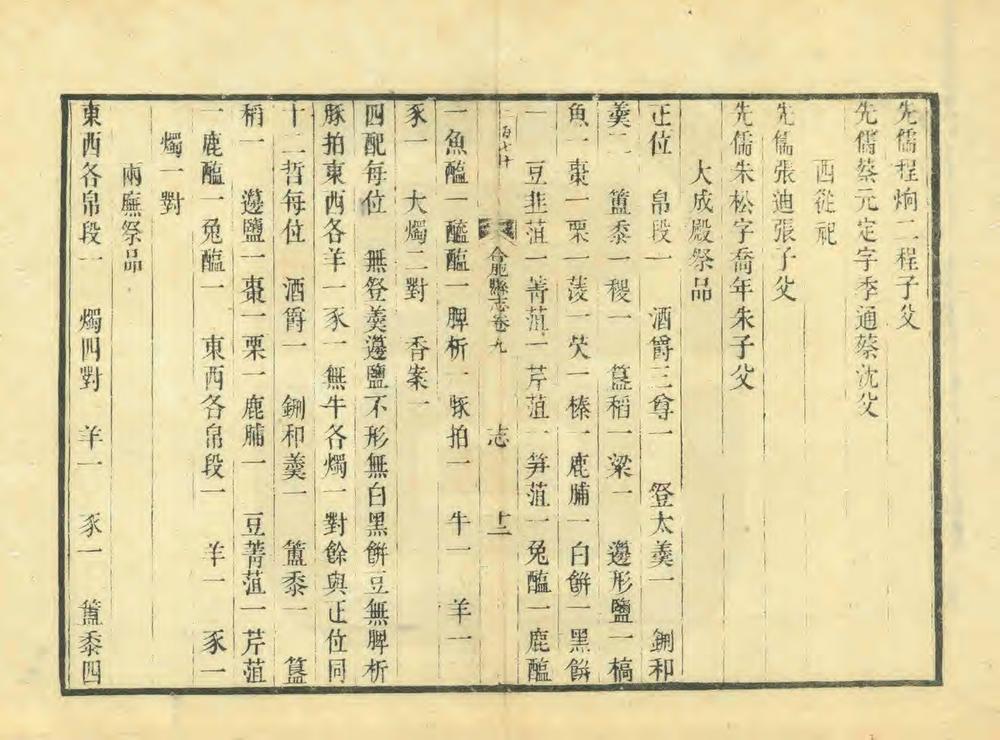 先儒程炯二程子父
先儒蔡元定字季通蔡沈父
西從祀
先儒張迪張子父
先儒朱松字喬年朱子父
大成殿祭品
正位 帛段一 酒爵三尊一 登太羹一 鉶和
羹二 簠黍一稷一 簋稻一粱一 邊形鹽一槁
魚一棗一栗一菱一芡一榛一鹿脯一白餅一黑餅
一 豆韭菹一菁菹一芹菹一笋菹一兔醢一鹿醢
合肥縣志卷九 志 十二
一魚醢一醓醢一脾析一豚拍一 牛一 羊一
豕一 大燭二對 香案一
四配每位 無登羹邊鹽不形無白黑餅豆無脾析
豚拍東西各羊一豕一無牛各燭一對餘與正位同
十二哲每位 酒爵一 鉶和羹一 簠黍一 簋
稻一 邊鹽一棗一栗一鹿脯一 豆菁菹一芹菹
一鹿醢一兔醢一 東西各帛段一 羊一 豕一
燭一對
兩廡祭品
東西各帛段一 燭四對 羊一 豕一 簠黍四